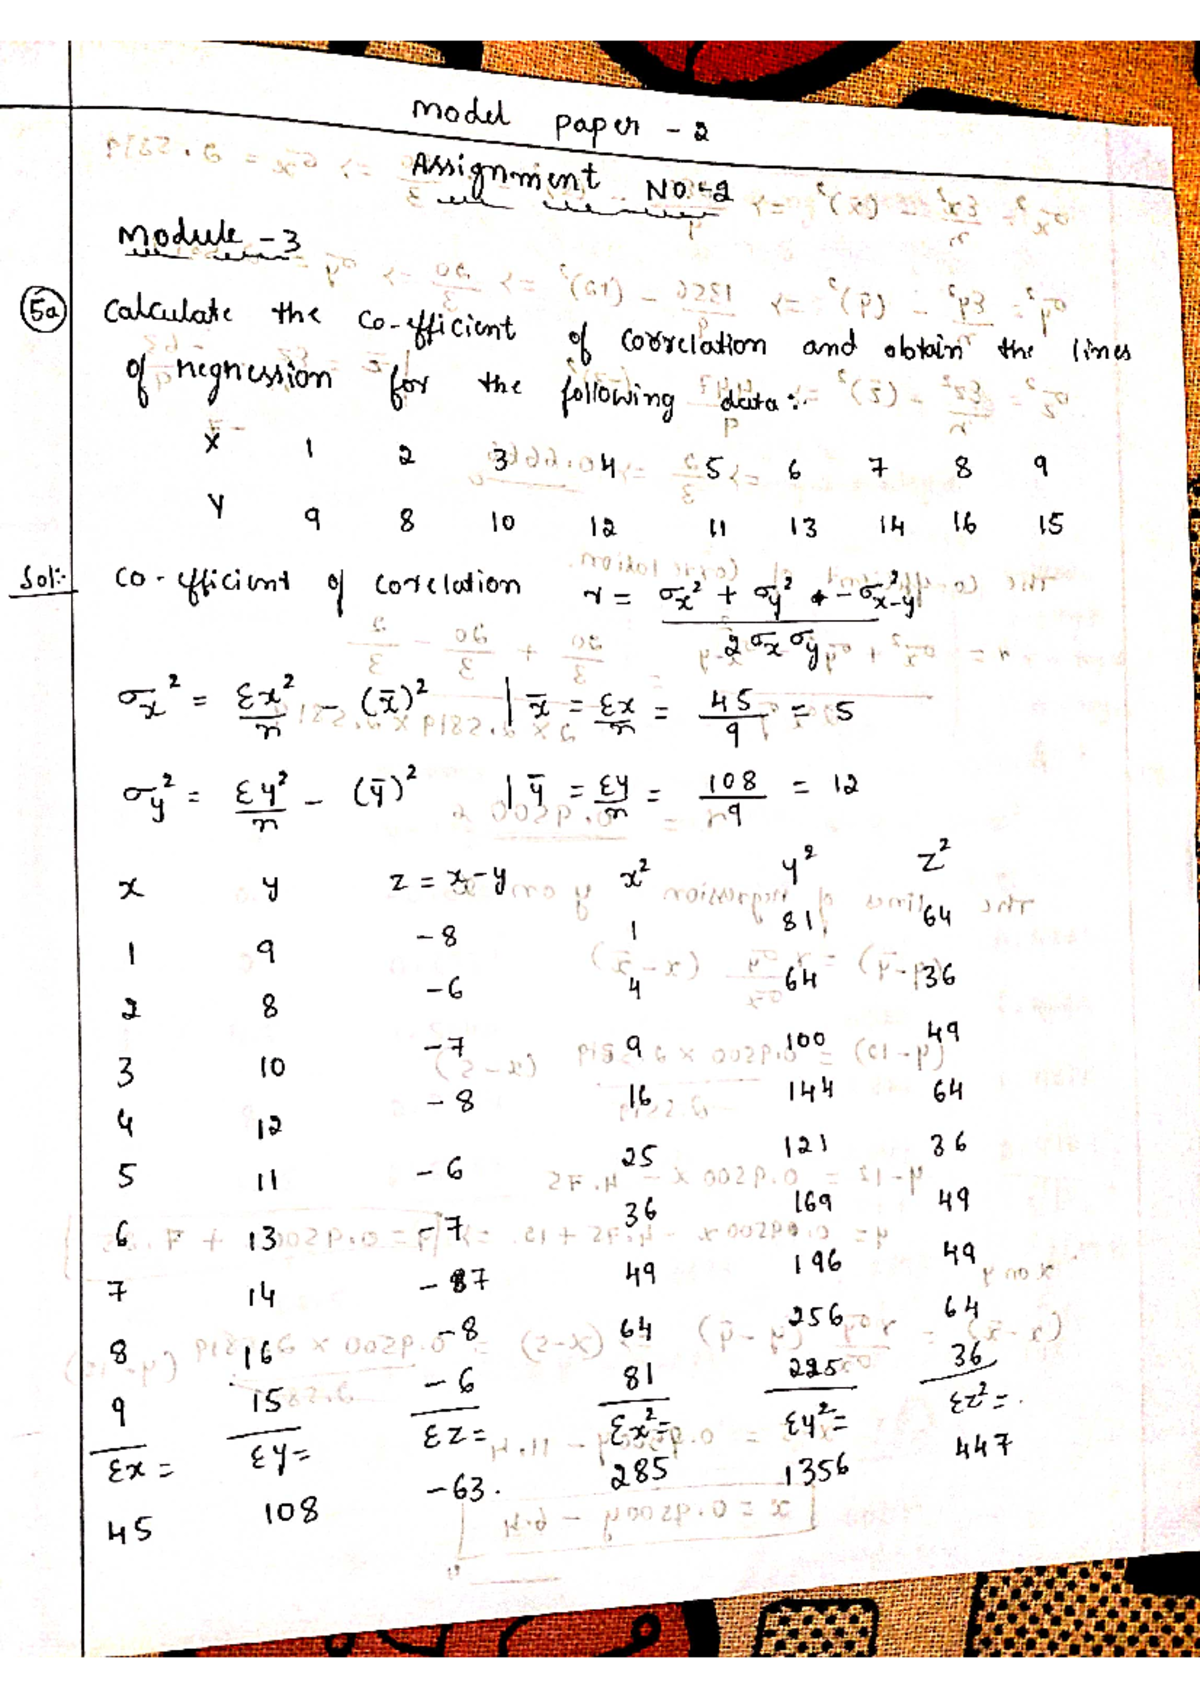 Model paper - 2
Assignment No:-2
Module - 3
5a Calculate the Co-efficient of Correlation and obtain the lines
of regression for the following data:-
X 1 2 3 4 5 6 7 8 9
Y 9 8 10 12 11 13 14 16 15
Sol:- Co-efficient of Correlation r = σx² + σy² - σ²x-y / 2 σx σy
σx² = Σx²/n - (x̄)² | x̄ = Σx/n = 45/9 = 5
σy² = Σy²/n - (ȳ)² | ȳ = Σy/n = 108/9 = 12
x y z = x-y x² y² z²
1 9 -8 1 81 64
2 8 -6 4 64 36
3 10 -7 9 100 49
4 12 -8 16 144 64
5 11 -6 25 121 36
6 13 -7 36 169 49
7 14 -7 49 196 49
8 16 -8 64 256 64
9 15 -6 81 225 36
Σx = Σy = Σz = Σx² = Σy² = Σz² =
45 108 -63. 285 1356 447